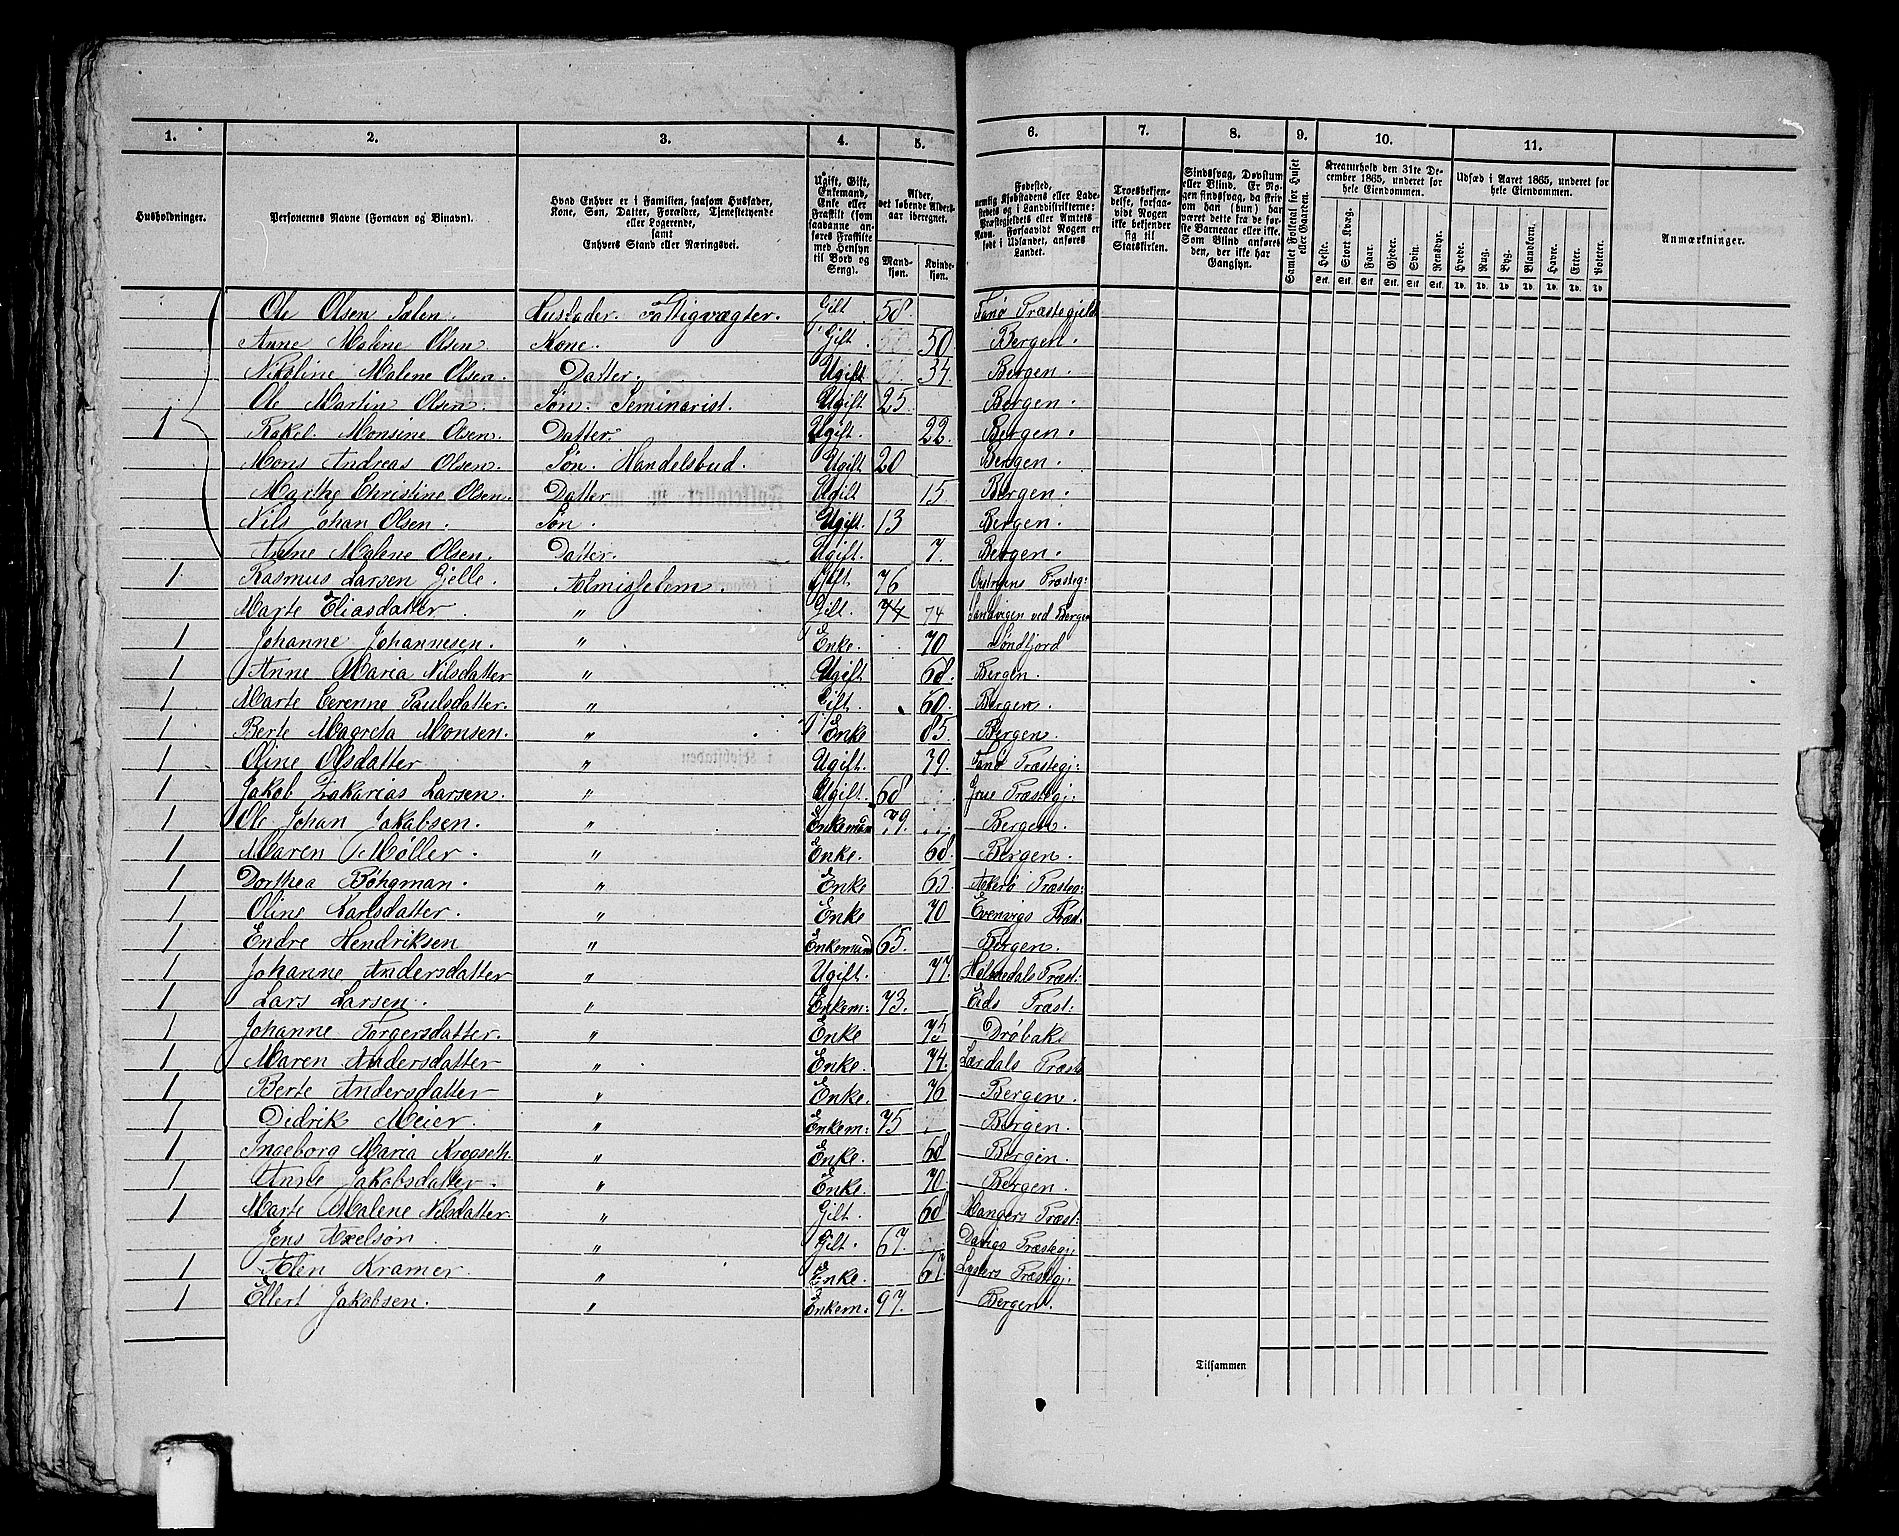 1. 2. 3. 4. 5. 6. 7. 8. 9. 10. 11.
Husholdninger.
Personernes Navne (Fornavn og Binavn).
Hvad Enhver er i Familien, saasom Husfader,
Kone, Søn, Datter, Forældre, Tjenestetyende
eller Logerende,
samt
Enhvers Stand eller Næringsvei.
Ugift, Gift,
Enkemand,
Enke eller
Fraskilt (som
saadanne an-
føres Fraskilte
med Hensyn
til Bord og
Seng).
Alder,
det løbende Alders-
aar iberegnet.
Mand-
kjøn.
Kvinde-
kjøn.
Fødested,
nemlig Kjøbstadens eller Lade-
stedets og i Landdistrikterne:
Præstegjeldets eller Amtets
Navn. Forsaavidt Nogen er
født i Udlandet, anføres
Landet.
Troesbekjen-
delse, forsaa-
vidt Nogen
ikke bekjender
sig til
Statskirken.
Sindssvag, Døvstum
eller Blind. Er No-
gen sindssvag, da skriv
om han (hun) har
været dette fra de før-
ste Barneaar eller ikke.
Som Blind anføres
den, der ikke har
Gangsyn.
Samlet Folketal for Huset
eller Gaarden.
Kreaturhold den 31te De-
cember 1865, underet for
hele Eiendommen.
Heste. Stort Kvæg. Faar. Gjeder. Svin. Rensdyr.
Stk. Stk. Stk. Stk. Stk. Stk.
Udsæd i Aaret 1865, underet for
hele Eiendommen.
Hvede. Rug. Byg. Blandkorn. Havre. Erter. Poteter.
Td. Td. Td. Td. Td. Td. Td.
Anmærkninger.
Ole Olsen Salen. Husfader. Fattigvægter. Gift 58. Fanø Præstegjeld
Anne Malene Olsen. Kone. Gift. 50. Bergen.
Nikoline Malene Olsen. Datter. Ugift 34. Bergen.
Ole Martin Olsen. Søn. Seminarist. Ugift. 25. Bergen.
1 Rakel. Monsine Olsen. Datter. Ugift. 22. Bergen.
Mons Andreas Olsen. Søn. Handelsbud. Ugift. 20 Bergen.
Marthe Christine Olsen. Datter Ugift 15. Bergen.
Nils Johan Olsen. Søn. Ugift. 13 Bergen.
Anne Malene Olsen. Datter. Ugift. 7. Bergen.
1 Rasmus Larsen Gjelle. Almisselem. Gift. 76 Præsteg:
Marte Eliasdatter " Gift. 74 74 Sandvigen ved Bergen
1 Johanne Johannesen. " Enke. 70 Søndfjord
1 Anne Maria Nilsdatter " Ugift 68. Bergen.
1 Marte Cerenne Paulsdatter. " Gift. 60. Bergen.
1 Berte Magreta Monsen. " Enke 85. Bergen.
1 Oline Olsdatter " Ugift. 79. Fanø Præstegj:
1 Jakob Zakarias Larsen. " Ugift. 68 Grue Præstegj:
1 Ole Johan Jakobsen. " Enkeman 79. Bergen.
1 Maren Møller. " Enke. 68. Bergen.
1 Dorthea Bøhgman. " Enke 65. Askerø Præsteg:
1 Oline Karlsdatter. " Enke 70 Evenvigs Præst:
1 Endre Hendriksen " Enkemand 65. Bergen.
1 Johanne Andersdatter " Ugift. 77. Præst:
1 Lars Larsen. " Enkem: 73. Eids Præst:
1 Johanne Torgersdatter. " Enke 75 Drøbak
1 Maren Andersdatter " Enke. 74. Lærdals Præst:
1 Berte Andersdatter " Enke. 76 Bergen.
1 Didrik Meier. " Enkem: 75 Bergen.
1 Ingeborg Maria Krogseth. " Enke. 68 Bergen.
1 Anne Jakobsdatter. " Enke. 70. Bergen.
1 Marte Malene Nilsdatter. " Gift. 68 Mangers Præst:
Jens Axelsøn. " Gift. 67. Davigs Præstegj:
1 Alen Kramer. " Enke. 67. Lysters Præstegj:
1 Ellert Jakobsen. " Enkem: 97. Bergen.
Tilsammen